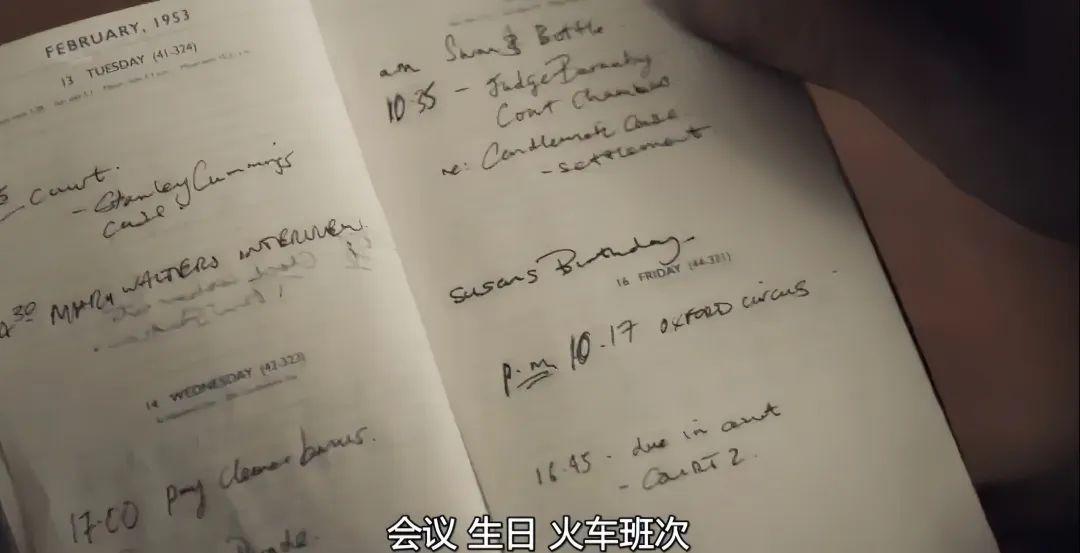 FEBRUARY, 1953
13 TUESDAY (41-324)
court.
- Stanley Cummings
case
30 MARY WALTERS INTERVIEW
14 WEDNESDAY (42-323)
17-00 pay
am Swan & Bottle
10.35 - Judge
Court Chambers
re: Candlemark case
- settlement
Susans Birthday
16 FRIDAY (44-321)
p.m. 10.17 OXFORD CIRCUS
16.45 - due in court
- COURT 2.
会议 生日 火车班次